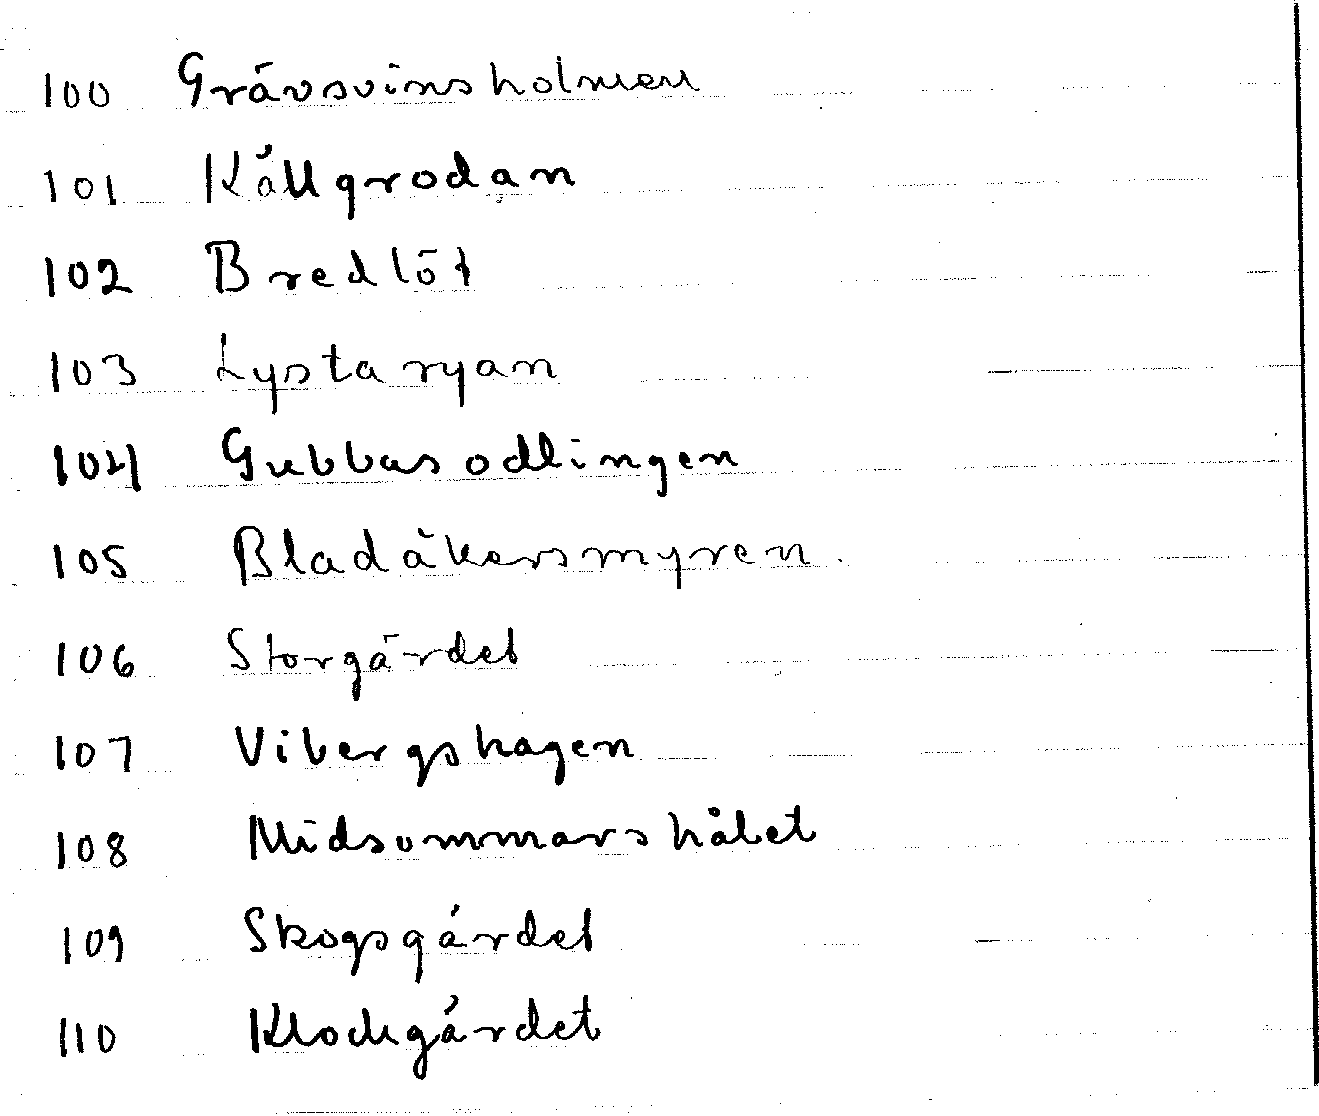 100 Grävsvinsholmen
101 Källgrodan
102 Bredlöt
103 Lystaryan
104 Gubbasodlingen
105 Bladåkersmyren.
106 Storgärdet
107 Vibergshagen
108 Midsommarshålet
109 Skogsgärdet
110 Klockgärdet